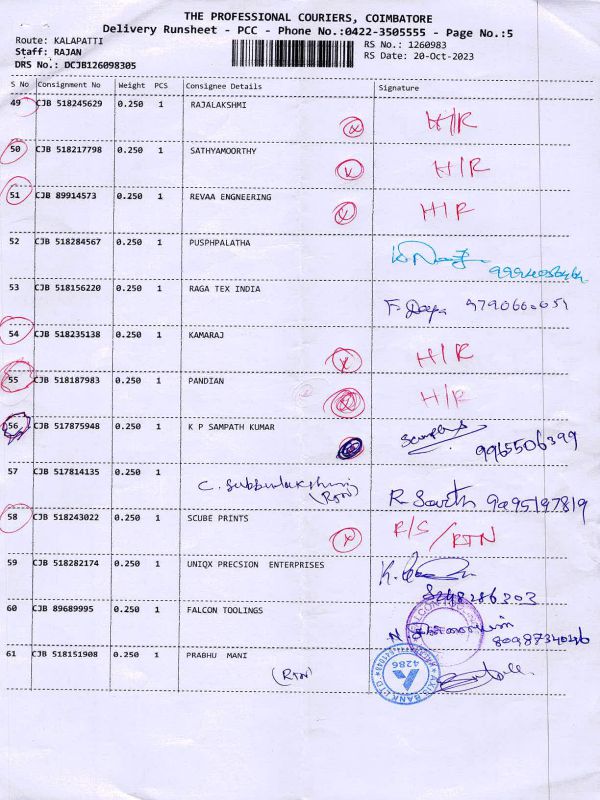 THE PROFESSIONAL COURIERS, COIMBATORE
Delivery Runsheet - PCC - Phone No.:0422-3505555 - Page No.:5
Route: KALAPATTI
Staff: RAJAN
DRS No.: DCJB126098305
RS No.: 1260983
RS Date: 20-Oct-2023
S No Consignment No Weight PCS Consignee Details Signature
49 CJB 518245629 0.250 1 RAJALAKSHMI
H/R
50 CJB 518217798 0.250 1 SATHYAMOORTHY
H/R
51 CJB 89914573 0.250 1 REVAA ENGNEERING
H/R
52 CJB 518284567 0.250 1 PUSPHPALATHA
53 CJB 518156220 0.250 1 RAGA TEX INDIA
54 CJB 518235138 0.250 1 KAMARAJ
H/R
55 CJB 518187983 0.250 1 PANDIAN
H/R
56 CJB 517875948 0.250 1 K P SAMPATH KUMAR
9965506399
57 CJB 517814135 0.250 1
C. Subbulakshmi
(RTN)
9095197819
58 CJB 518243022 0.250 1 SCUBE PRINTS
R/S / RTN
59 CJB 518282174 0.250 1 UNIQX PRECSION ENTERPRISES
8248286303
60 CJB 89689995 0.250 1 FALCON TOOLINGS
61 CJB 518151908 0.250 1 PRABHU MANI
(RTN)
AXIS BANK LTD
4286